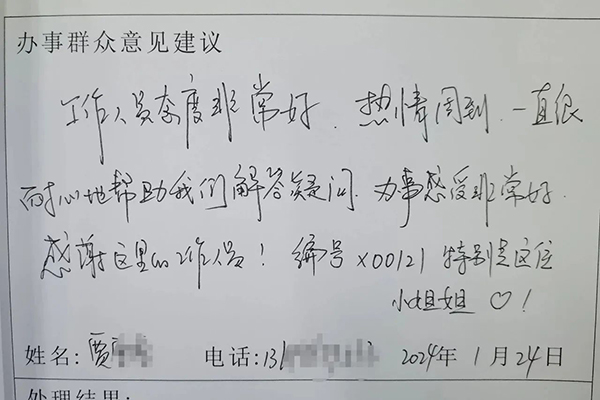 办事群众意见建议
工作人员态度非常好.热情周到.一直很
耐心地帮助我们解答疑问.办事感受非常好.
感谢这里的工作人员!编号X00121特别是这位
小姐姐♡!
姓名:贾 电话:131 2024年1月24日
处理结果: